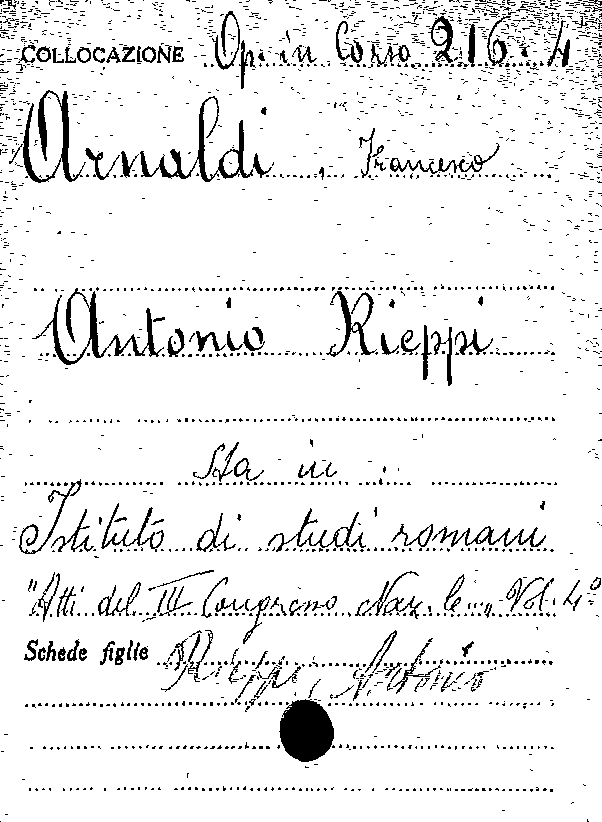 COLLOCAZIONE Op. in Corso 216. 4
Arnaldi, Francesco
Antonio Rieppi
Sta in :
Istituto di studi romani
"Atti del III Congresso Naz.le..." Vol. 4º
Schede figlie Rieppi, Antonio